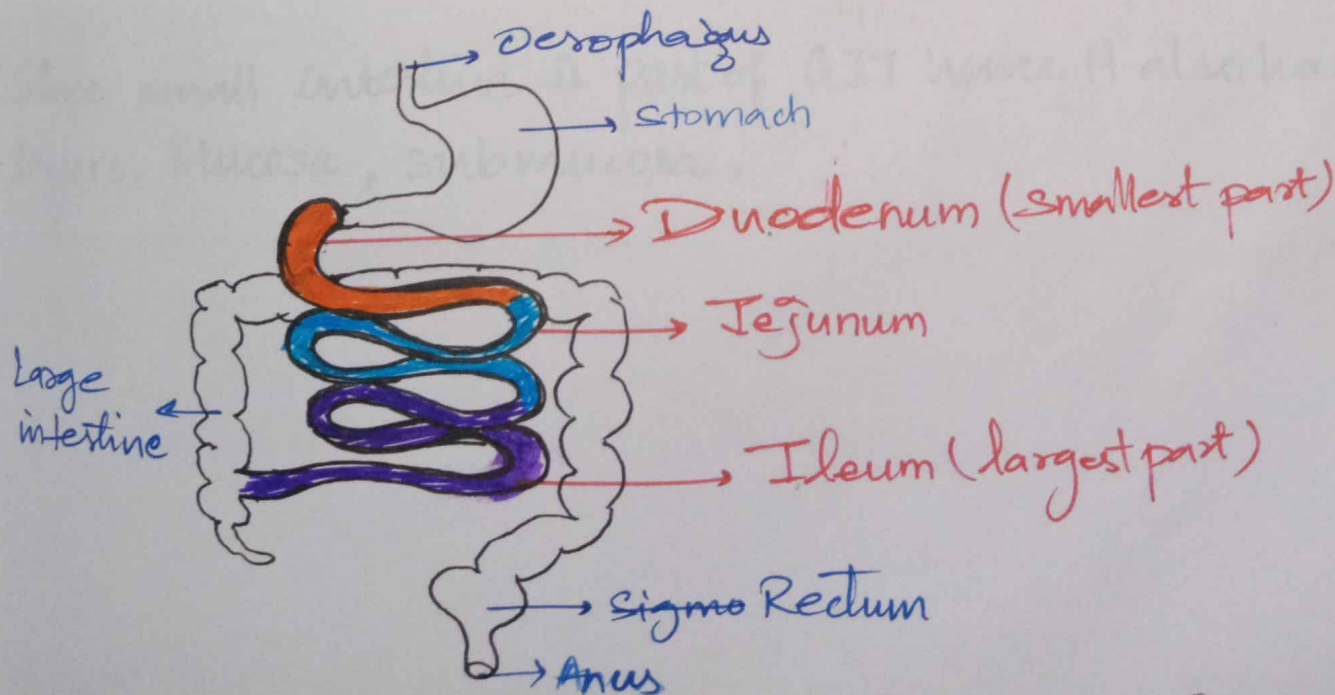 Oesophagus
Stomach
Duodenum (smallest part)
Jejunum
Large
intestine
Ileum (largest part)
Sigmo Rectum
Anus